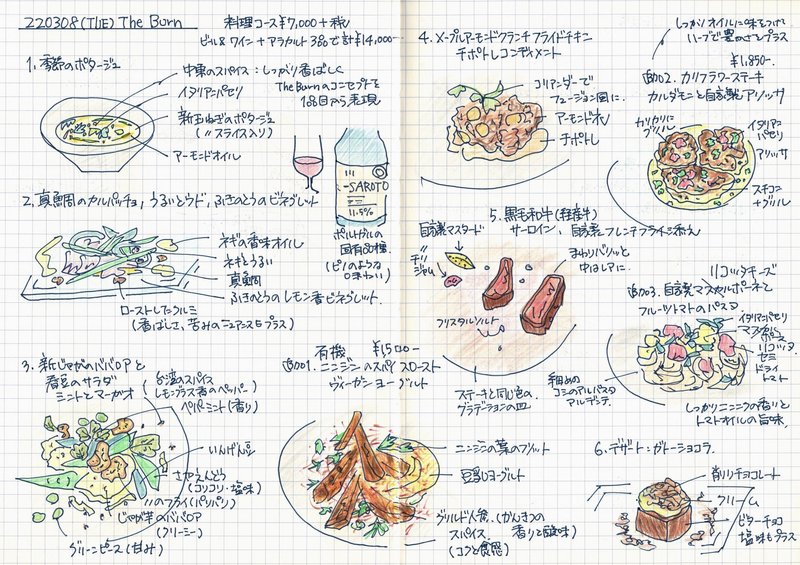 220308(TUE) The Burn
料理コース¥7,000+税
ビール&ワイン+アラカルト3品で計¥14,000-
1. 季節のポタージュ
中東のスパイス:しっかり香ばしく
イタリアンパセリ
新玉ねぎのポタージュ
(〃スライス入り)
アーモンドオイル
The Burnのコンセプトを
1品目から表現
SAROTO
11.5%
ポルトガルの
固有品種
(ピノのような
味わい)
2. 真鯛のカルパッチョ,うるいとウド,ふきのとうのビネグレット
ネギの香味オイル
ネギとうるい
真鯛
ふきのとうのレモン香ビネグレット.
ローストしたクルミ
(香ばしさ,苦みのニュアンスをプラス)
3. 新じゃがのババロアと
春豆のサラダ
ミントとマーガオ
台湾のスパイス
レモングラス香のペッパー
ペパーミント(香り)
いんげん豆
さやえんどう
(コリコリ・塩味)
〃のフライ(パリパリ)
じゃが芋のババロア
(クリーミー)
グリーンピース(甘み)
有機 ¥1,500-
追001. ニンジンのスパイスロースト
ヴィーガンヨーグルト
ニンジンの葉のフリット
豆乳ヨーグルト
グリルド人参(かんきつの
スパイス. 香りと酸味)
(コクと食感)
4. メープルアーモンドクランチフライドチキン
チポトレコンディメント
コリアンダーで
フュージョン風に.
アーモンド
チポトレ
5. 黒毛和牛(経産牛)
サーロイン,自家製フレンチフライ添え
自家製マスタード
まわりパリッと
中はレアに.
クリスタルソルト
ステーキと同じ色の
グラデーションの皿
しっかりオイルに味をつけ
ハーブで豊かさをプラス
¥1,850-
追002. カリフラワーステーキ
カルダモンと自家製アリッサ
カリカリに
グリル
イタリアン
パセリ
アリッサ
+グリル
リコッタチーズ
追003. 自家製マスカルポーネと
フルーツトマトのパスタ
イタリアンパセリ
マスカル
ポーネ
リコッタ
セミ
ドライ
トマト
細めの
アルデンテ.
しっかりニンニクの香りと
トマトオイルの旨味.
6. デザート:ガトーショコラ.
削りチョコレート
クリーム
ビターチョコ
塩味もプラス